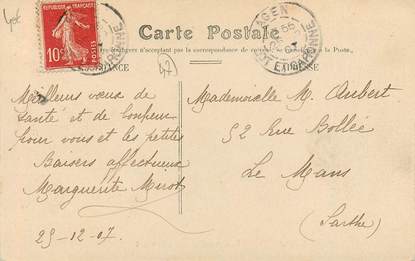 Carte Postale
RÉPUBLIQUE FRANÇAISE
10c
POSTES
AGEN
LOT ET GARONNE
n'acceptant pas la correspondance
à la Poste
47
Meilleurs vœux de
santé et de bonheur
pour vous et les petites
Baisers affectueux
Marguerite Mirot
29-12-07
Mademoiselle M. Aubert
52 Rue Bollée
Le Mans
(Sarthe)